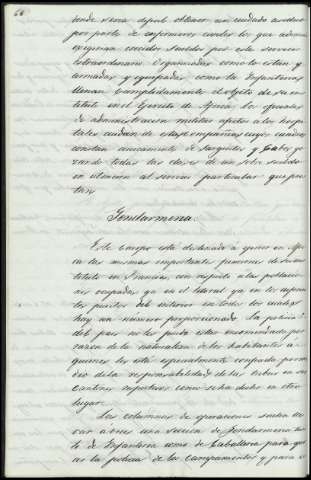 68
donde seria dificil obtener un cuidado asiduo
por parte de enfermeros civiles los que ademas
exigirian crecidos sueldos por este servicio
extraordinario. Organizadas como lo están y
armadas y equipadas como la Infanteria
llenan cumplidamente el objeto de su ins
tituto en el Ejercito de Africa. Los oficiales
de administracion militar afectos a los hospi
tales cuidan de estas compañias cuyos cuadros
constan unicamente de sargentos y Cabos go
zando todas las clases de un sobre sueldo
en atencion al servicio particular que pres
tan.
Gendarmeria.
Este Cuerpo está destinado a ejercer en Afri
ca las mismas importantes funciones de su ins
tituto en Francia, con respecto a las poblacio
nes ocupadas ya en el litoral ya en los
puntos del interior en todos los cuales
hay un número proporcionado. La policia
del pais no les puede estar encomendada por
razon de la naturaleza de los habitantes á
quienes les está especialmente confiada por me
dio de la responsabilidad de las tribus en sus
cantones respectivos como se ha dicho en otro
lugar.
Las columnas de operaciones suelen lle
var a veces una seccion de Gendarmeria tan
to de Infanteria como de Caballeria para que
la policia de los campamentos y para